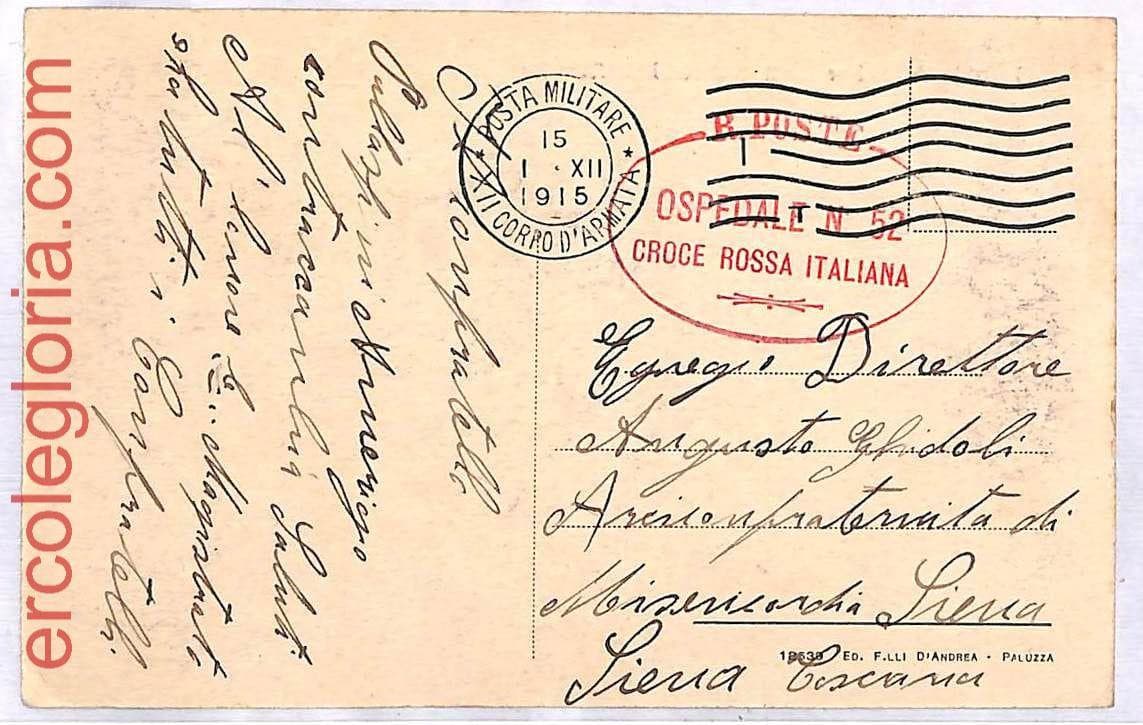 ercolegloria.com
POSTA MILITARE
15
I · XII
1915
XII CORPO D'ARMATA
R. POSTE
OSPEDALE N 52
CROCE ROSSA ITALIANA
Confratello
Amerigo
contraccambia Saluti
Al' Onore
Magistrato
sta tutti i Confratelli.
Egregi. Direttore
Augusto Ghidoli
Arciconfraternita di
Misericordia Siena
Siena Toscana
12539 ED. F.LLI D'ANDREA - PALUZZA